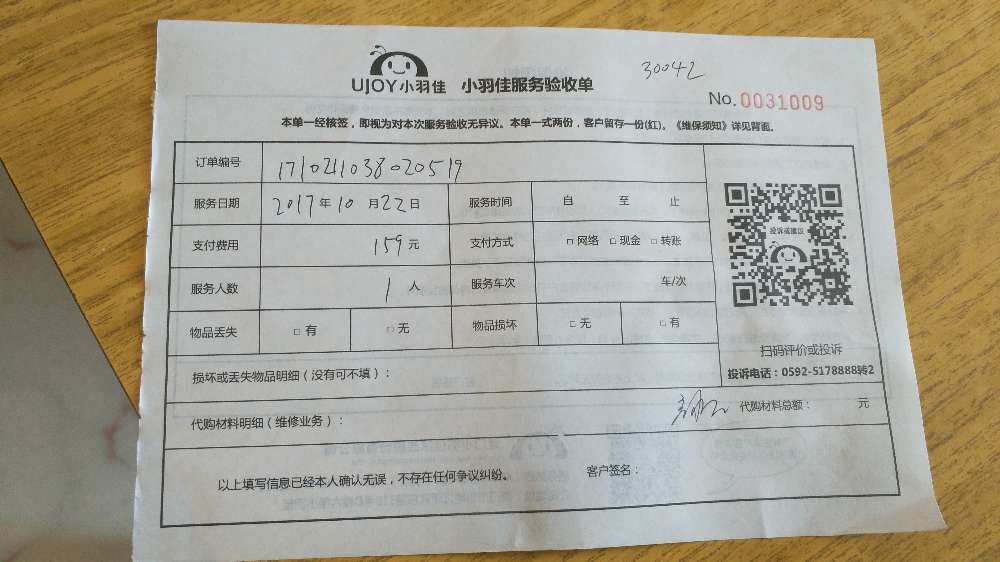 30042
UJOY小羽佳 小羽佳服务验收单
No. 0031009
本单一经核签，即视为对本次服务验收无异议。本单一式两份，客户留存一份(红)。《维保须知》详见背面。
订单编号 1710211038020519
服务日期 2017年10月22日 服务时间 自 至 止
投诉或建议
支付费用 159元 支付方式 □网络 □现金 □转账
服务人数 1人 服务车次 车/次
物品丢失 □有 □无 物品损坏 □无 □有
扫码评价或投诉
投诉电话：0592-5178888转2
损坏或丢失物品明细（没有可不填）：
代购材料明细（维修业务）： 代购材料总额： 元
以上填写信息已经本人确认无误，不存在任何争议纠纷。 客户签名：